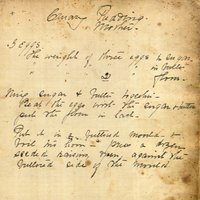 Canary Pudding.
Mother.
3 Eggs.
The weight of three eggs in sugar,
" " " " " in butter
" flour.
sugar & butter together -
Beat the eggs with the sugar & butter
put the flour in last.
Put it in a buttered mould &
boil for 1 hour - press a dozen
seeded raisins, open, against the
buttered side of the mould.